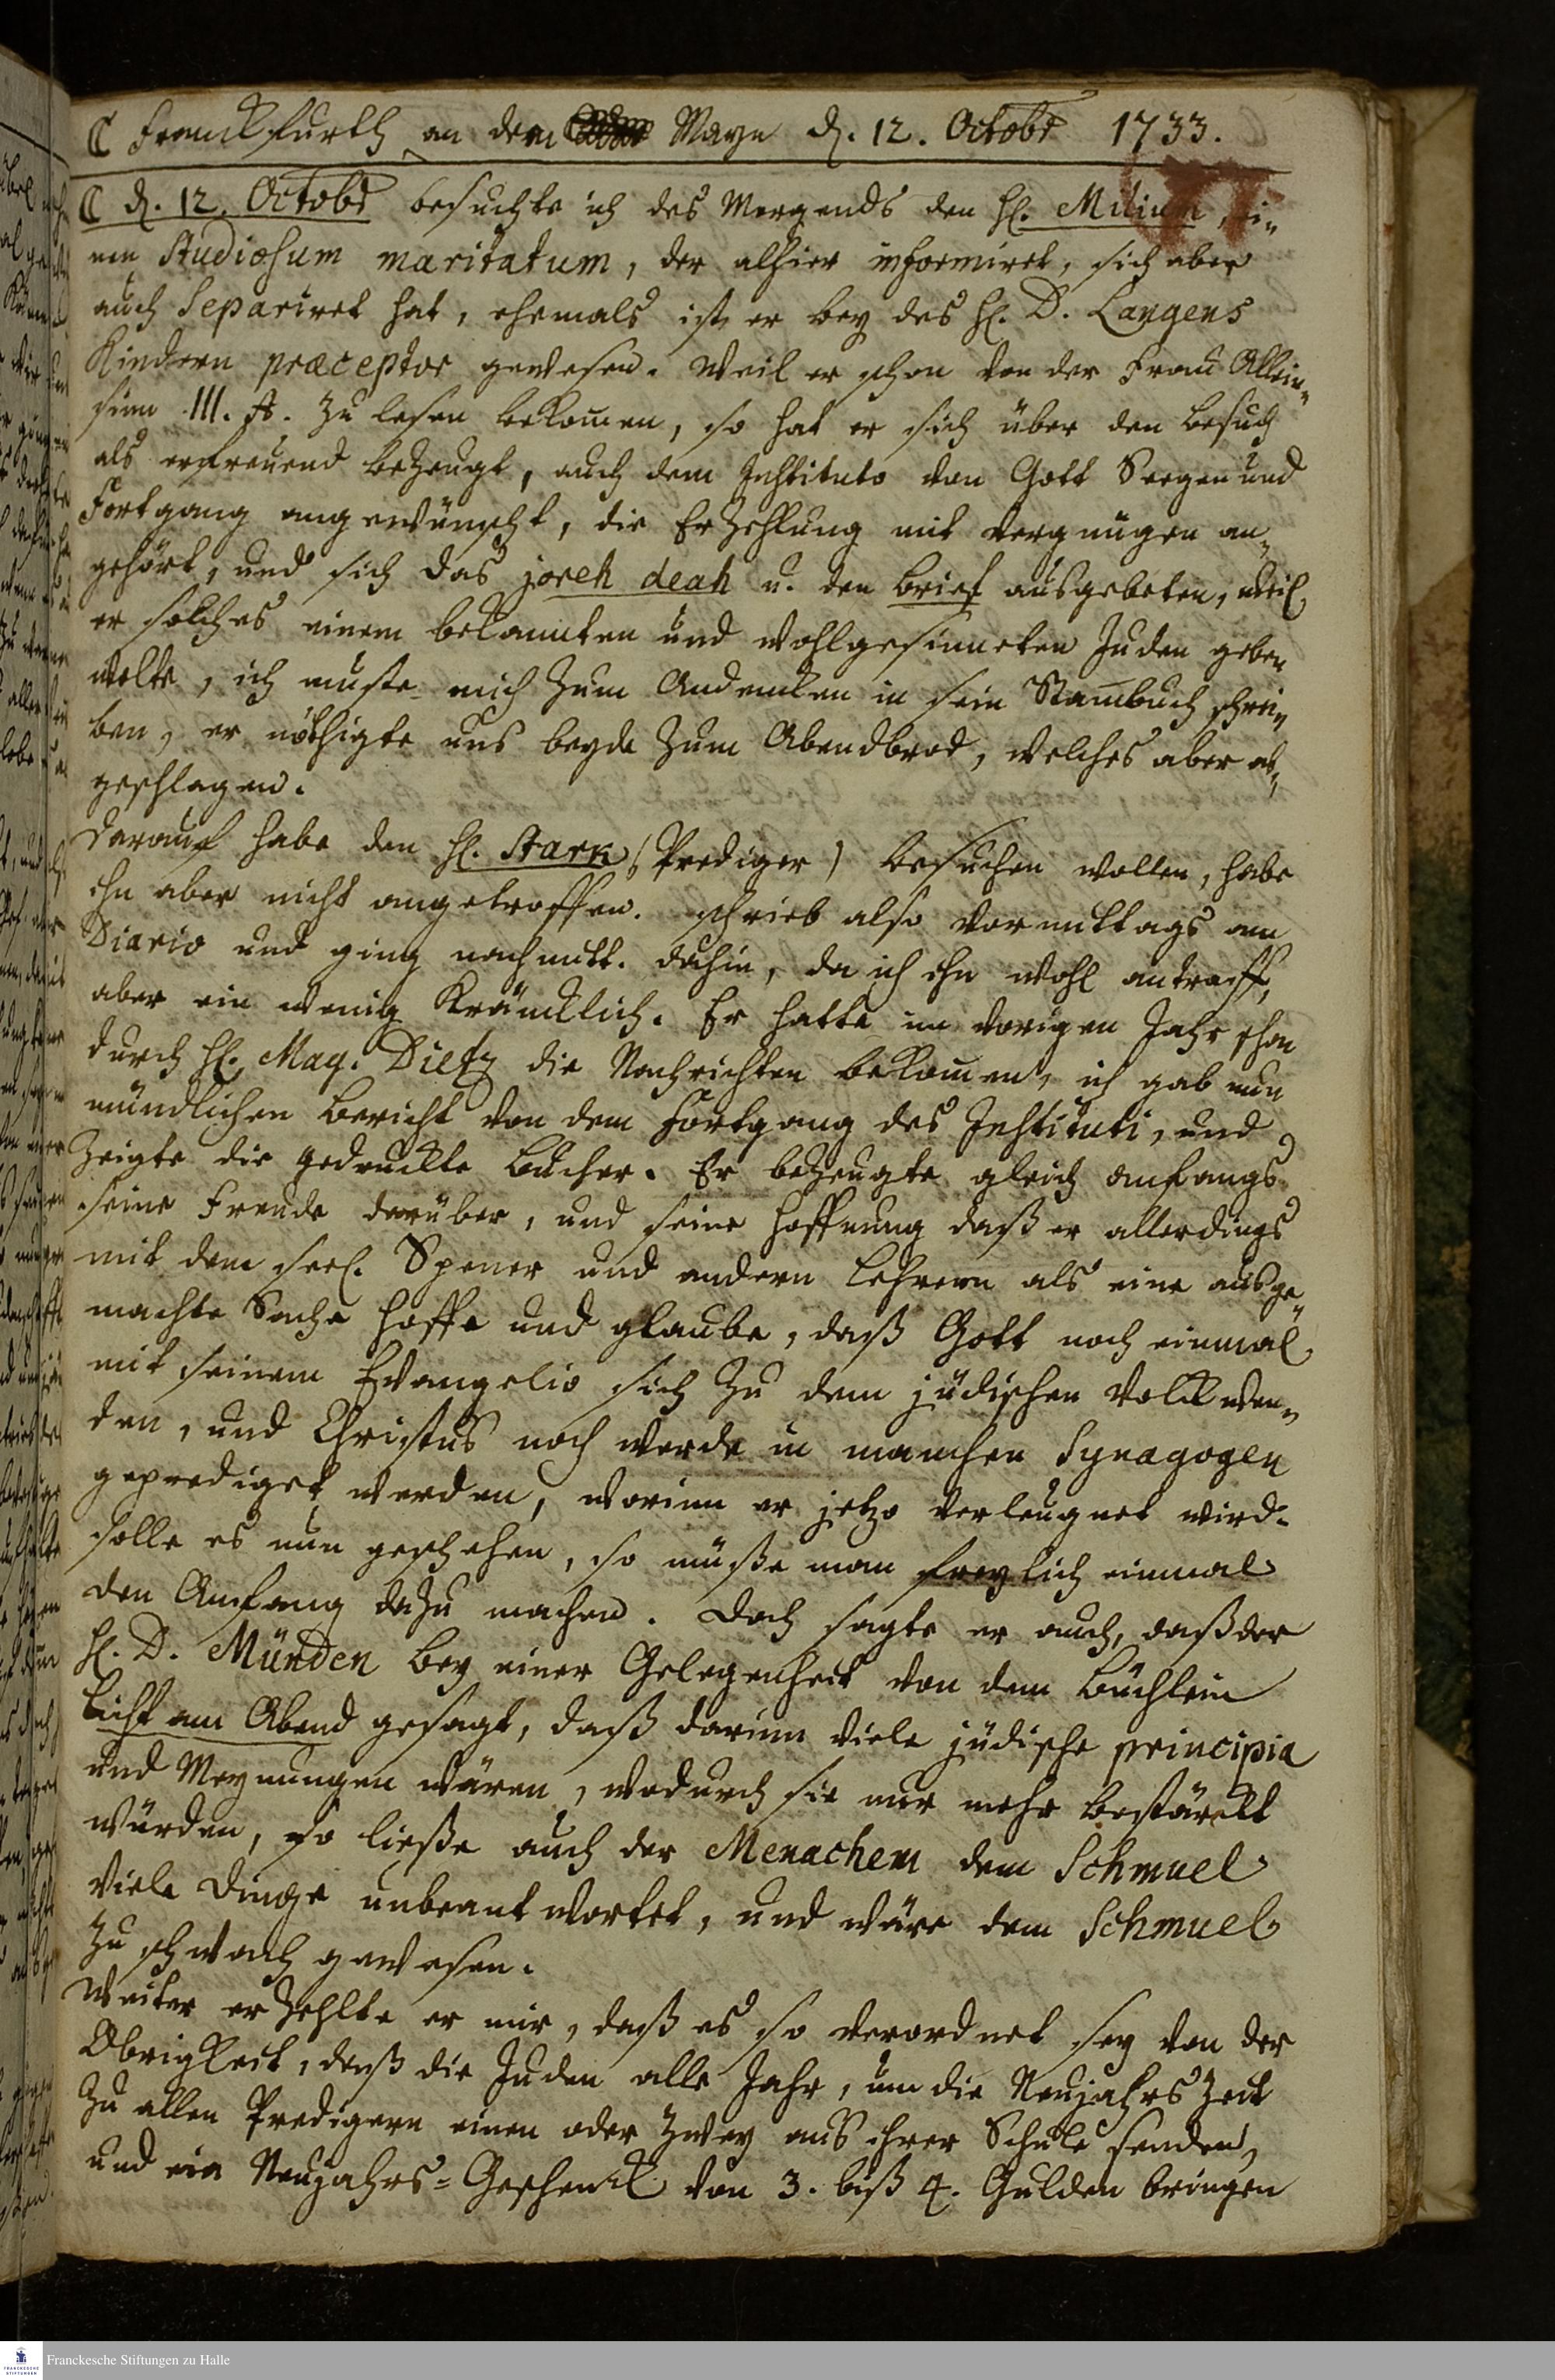 ☾ Franckfurth an dem Mayn d. 12. Octobr 1733.
☾ d. 12. Octobr besuchte ich des Morgends den H. Milium, ei-
nen Studiosum maritatum, der alhier informiret, sich aber
auch separiret hat, ehemals ist er bey des H. D. Langens
Kindern præceptor gewesen. Weil er schon von der Frau Allein-
sinn III. St. zu lesen bekommen, so hat er sich über den besuch
als erfreuend bezeugt, auch dem Instituto von Gott Seegen und
Fortgang angewünscht, die Erzehlung mit vergnügen an-
gehört, und sich das joreh deah u. den brief ausgebeten, weil
er solches einem bekannten und wohlgesinneten Juden geben
wolte, ich muste mich zum Andencken in sein Stambuch schrei-
ben, er nöthigte uns beyde zum Abendbrod, welches aber ab-
geschlagen.
Darauf habe den H. Stark (Prediger) besuchen wollen, habe
ihn aber nicht angetroffen. schrieb also vormittags am
Diario und ging nachmitt. dahin, da ich ihn wohl antraff,
aber ein wenig kräncklich. Er hatte im vorigen Jahr schon
durch H. Mag. Dietz die Nachrichten bekommen, ich gab nun
mündlichen bericht von dem Fortgang des Instituti, und
zeigte die gedruckte bücher. Er bezeugte gleich anfangs
seine Freude darüber, und seine hoffnung daß er allerdings
mit dem seel. Spener und andern Lehrern als eine ausge-
machte Sache hoffe und glaube, daß Gott noch einmal
mit seinem Evangelio sich zu dem jüdischen Volck wen-
den, und Christus noch werde in manchen Synagogen
geprediget werden, worinn er jetzo verleugnet wird.
solle es nun geschehen, so müße man freylich einmal
den Anfang dazu machen. Doch sagte er auch, daß der
H. D. Münden bey einer Gelegenheit von dem büchlein
Licht am Abend gesagt, daß darinn viele jüdische principia
und Meynungen wären, wodurch sie nur mehr bestärckt
würden, so ließe auch der Menachem dem Schmuel
viele Dinge unbeantwortet, und wäre dem Schmuel
zu schwach gewesen.
Weiter erzehlte er mir, daß es so verordnet sey von der
Obrigkeit, daß die Juden alle Jahr, um die Neujahrs Zeit
zu allen Predigern einen oder zwey aus ihrer Schule senden,
und ein Neujahrs-Geschenck von 3. biß 4. Gulden bringen
FRANCKESCHE STIFTUNGEN
Franckesche Stiftungen zu Halle